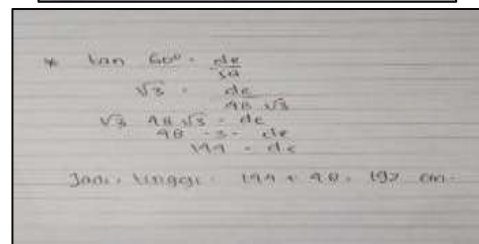 * tan 60° = de
√3 = de
48 √3
√3 48 √3 = de
48 . 3 = de
144 = de
Jadi, tinggi = 144 + 48 = 192 cm.